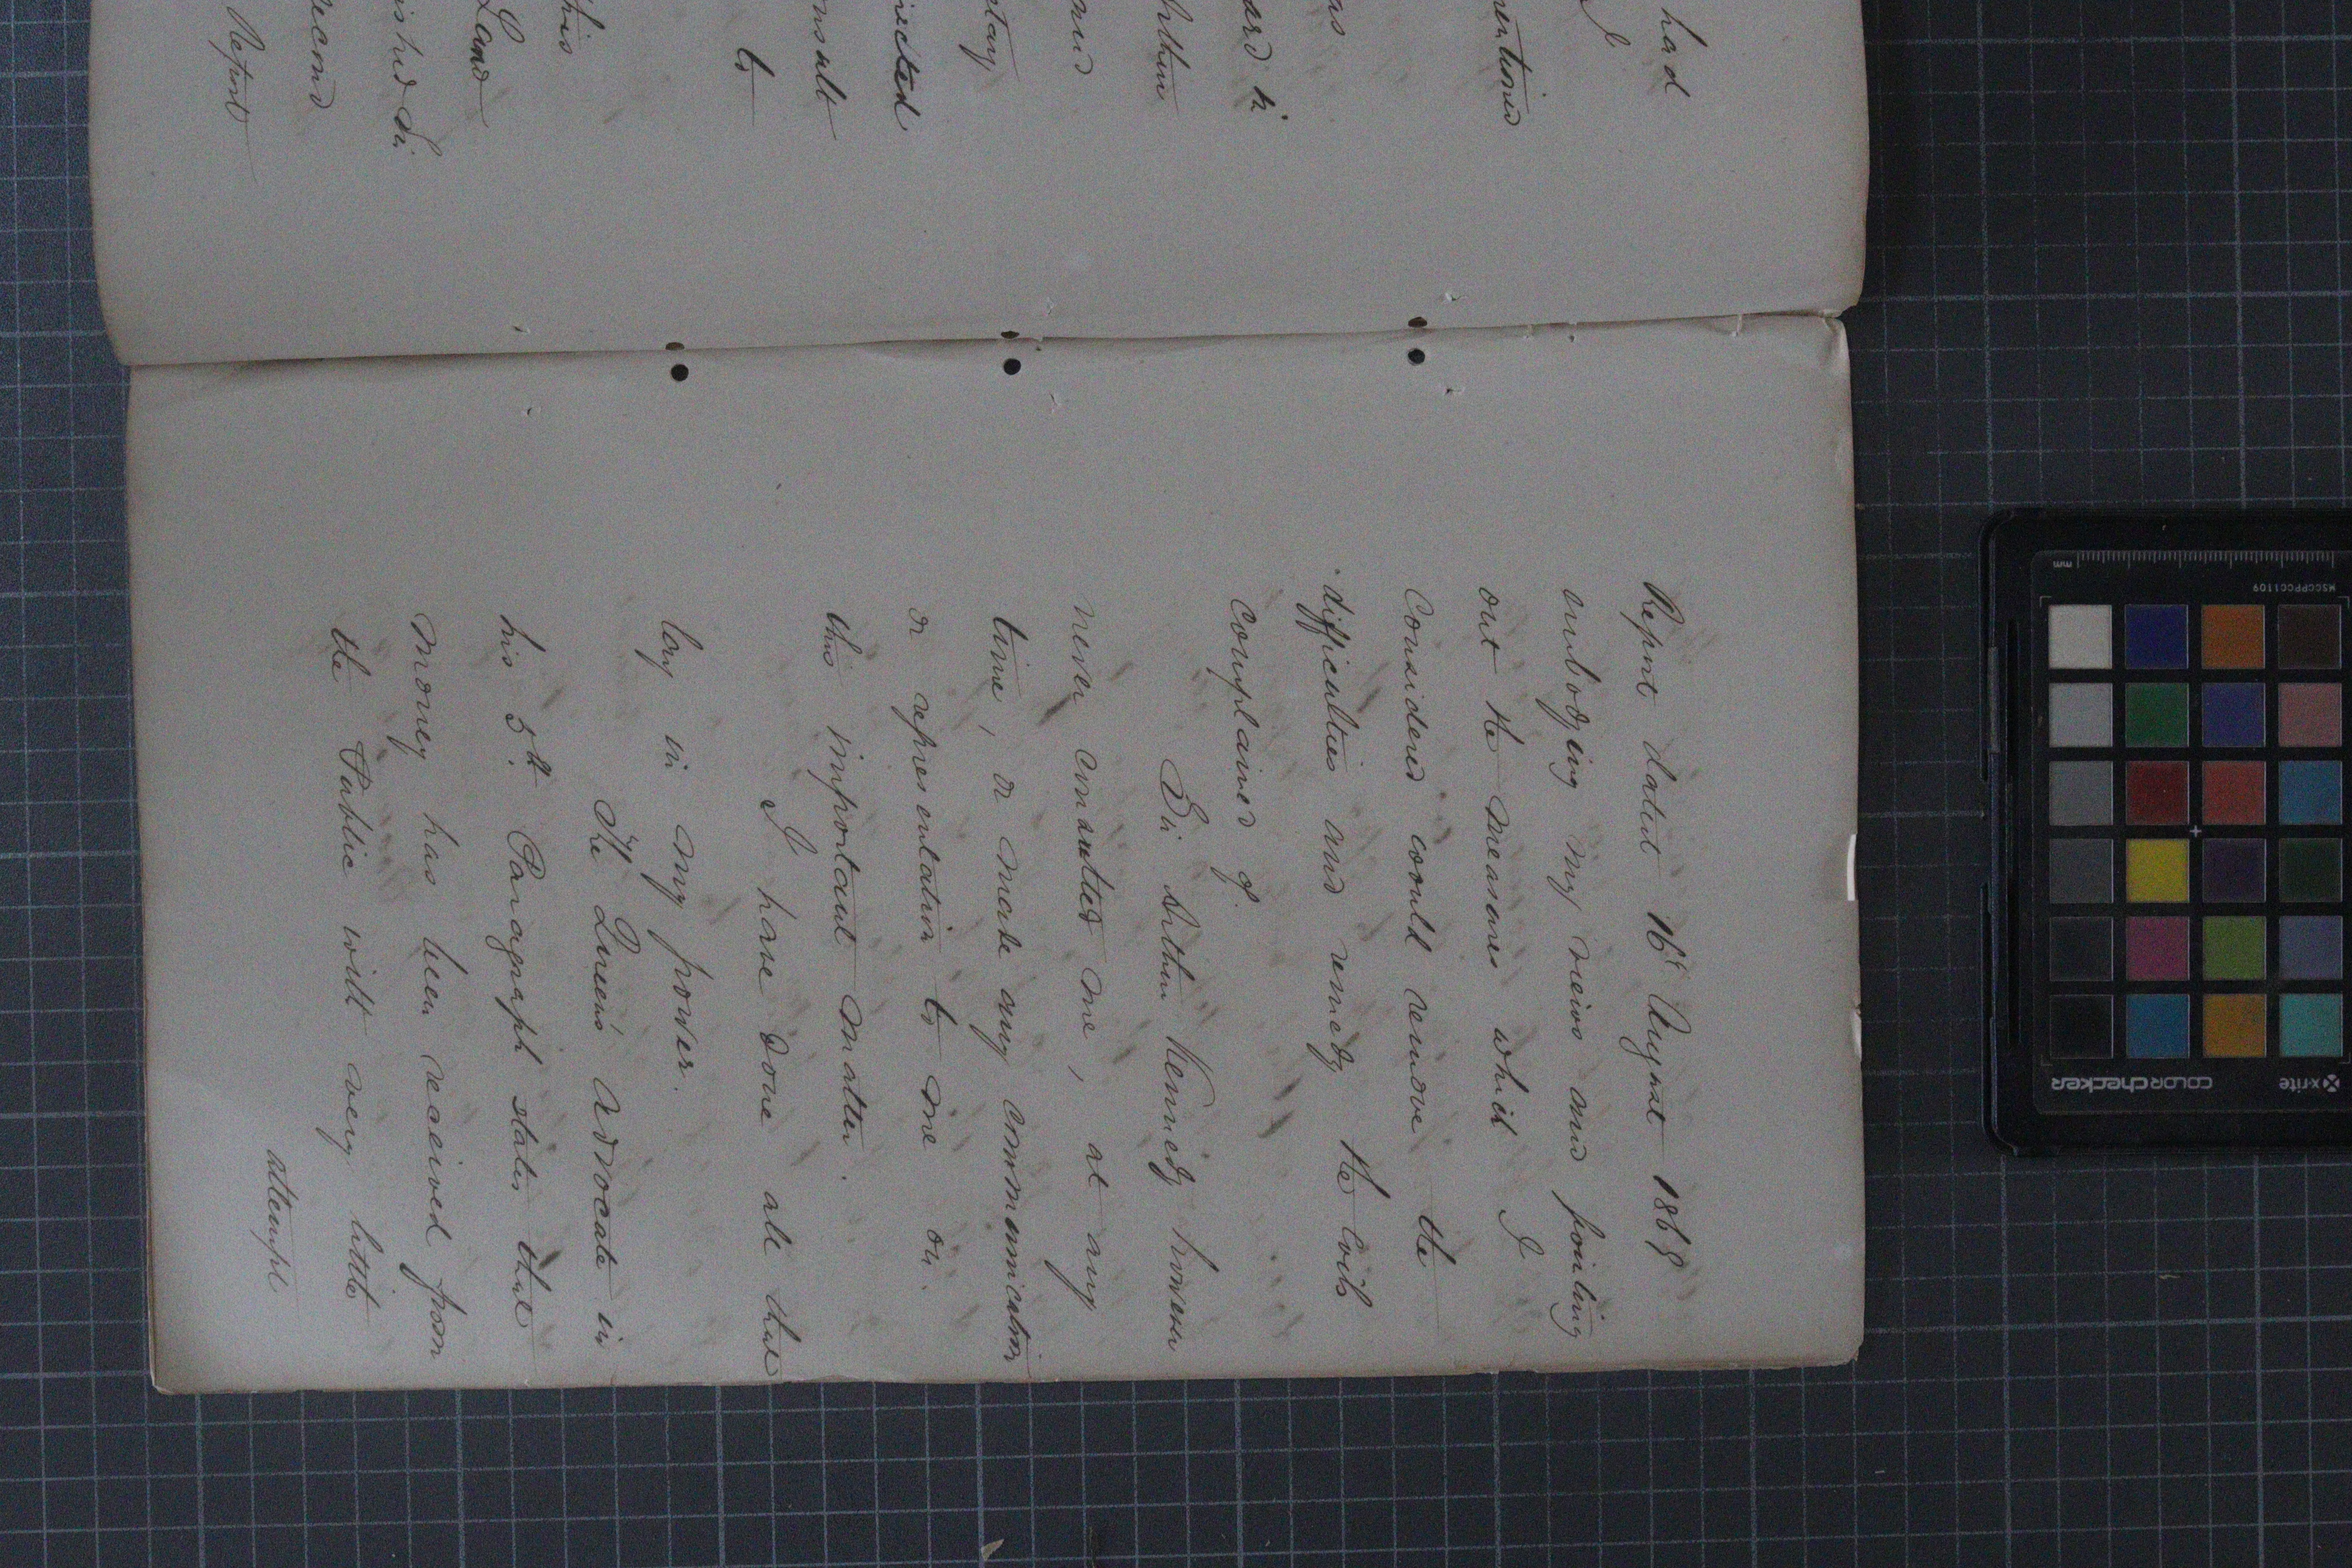 had
I
mentioned
as
ard
Arthur
and
etary
irected
onsult
to
this
Land
ished Si
econd
Report
Report dated 16th August 1868
embodying my views and pointing
out the measures which I
considered would remove the
difficulties and remedy the evils
complained of.
Sir Arthur Kennedy however
never consulted me, at any
time, or made any communication
or representation to me on
this important matter.
I have done all that
lay in my power.
The Queen's Advocate in
his 5th Paragraph states that
money has been received from
the Public with very little
attempt
mm
MSCCPPCC1109
x-rite
colorchecker